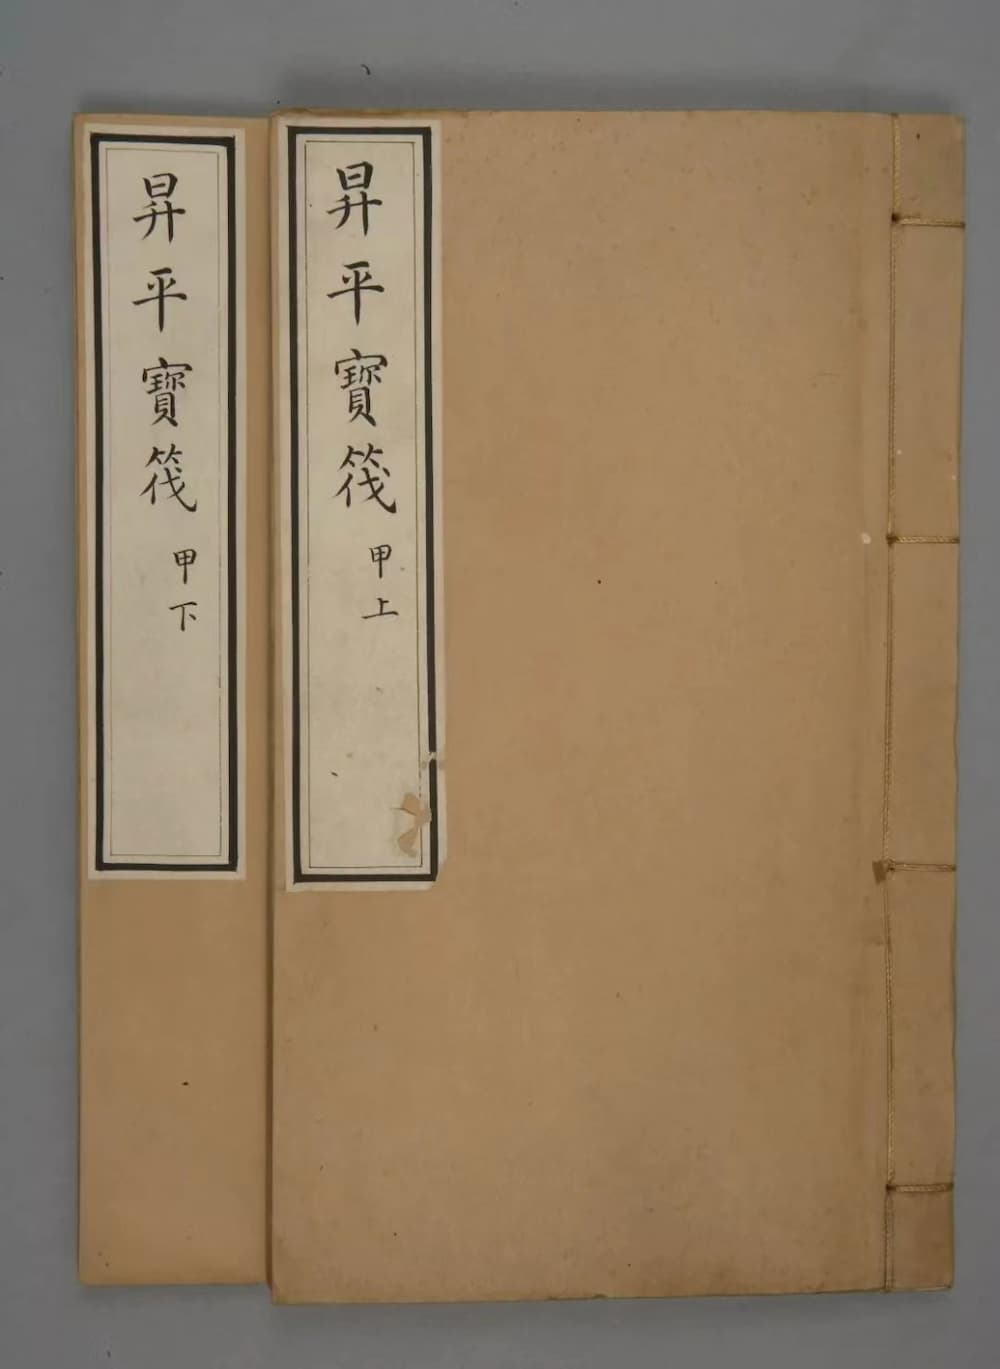 昇平寶筏
甲上
昇平寶筏
甲下